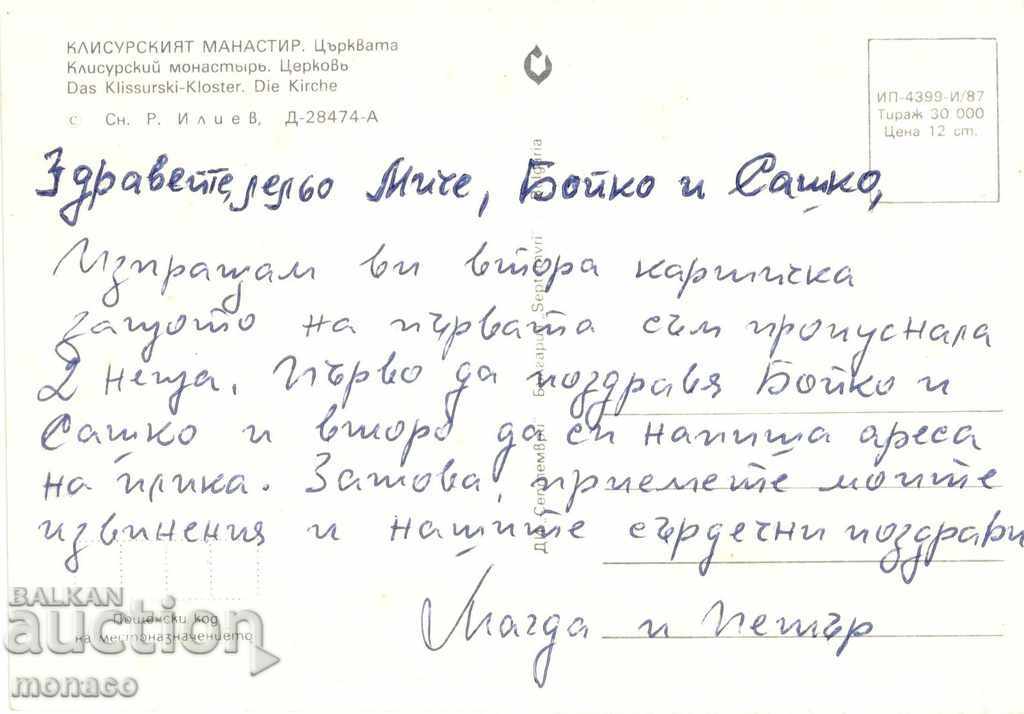 КЛИСУРСКИЯТ МАНАСТИР. Църквата
Клисурский монастырь. Церковь
Das Klissurski-Kloster. Die Kirche
с Сн. Р. Илиев, Д-28474-А
ИП-4399-И/87
Тираж 30 000
Цена 12 ст.
Здравейте, лельо Миче, Бойко и Сашко,
Изпращам ви втора картичка
защото на първата съм пропуснала
2 неща. Първо да поздравя Бойко и
Сашко и второ да си напиша ареса
на плика. Затова, приемете моите
извинения и нашите сърдечни поздрави
Магда и Петър
Пощенски код
на местоназначението
BALKAN
auction
monaco